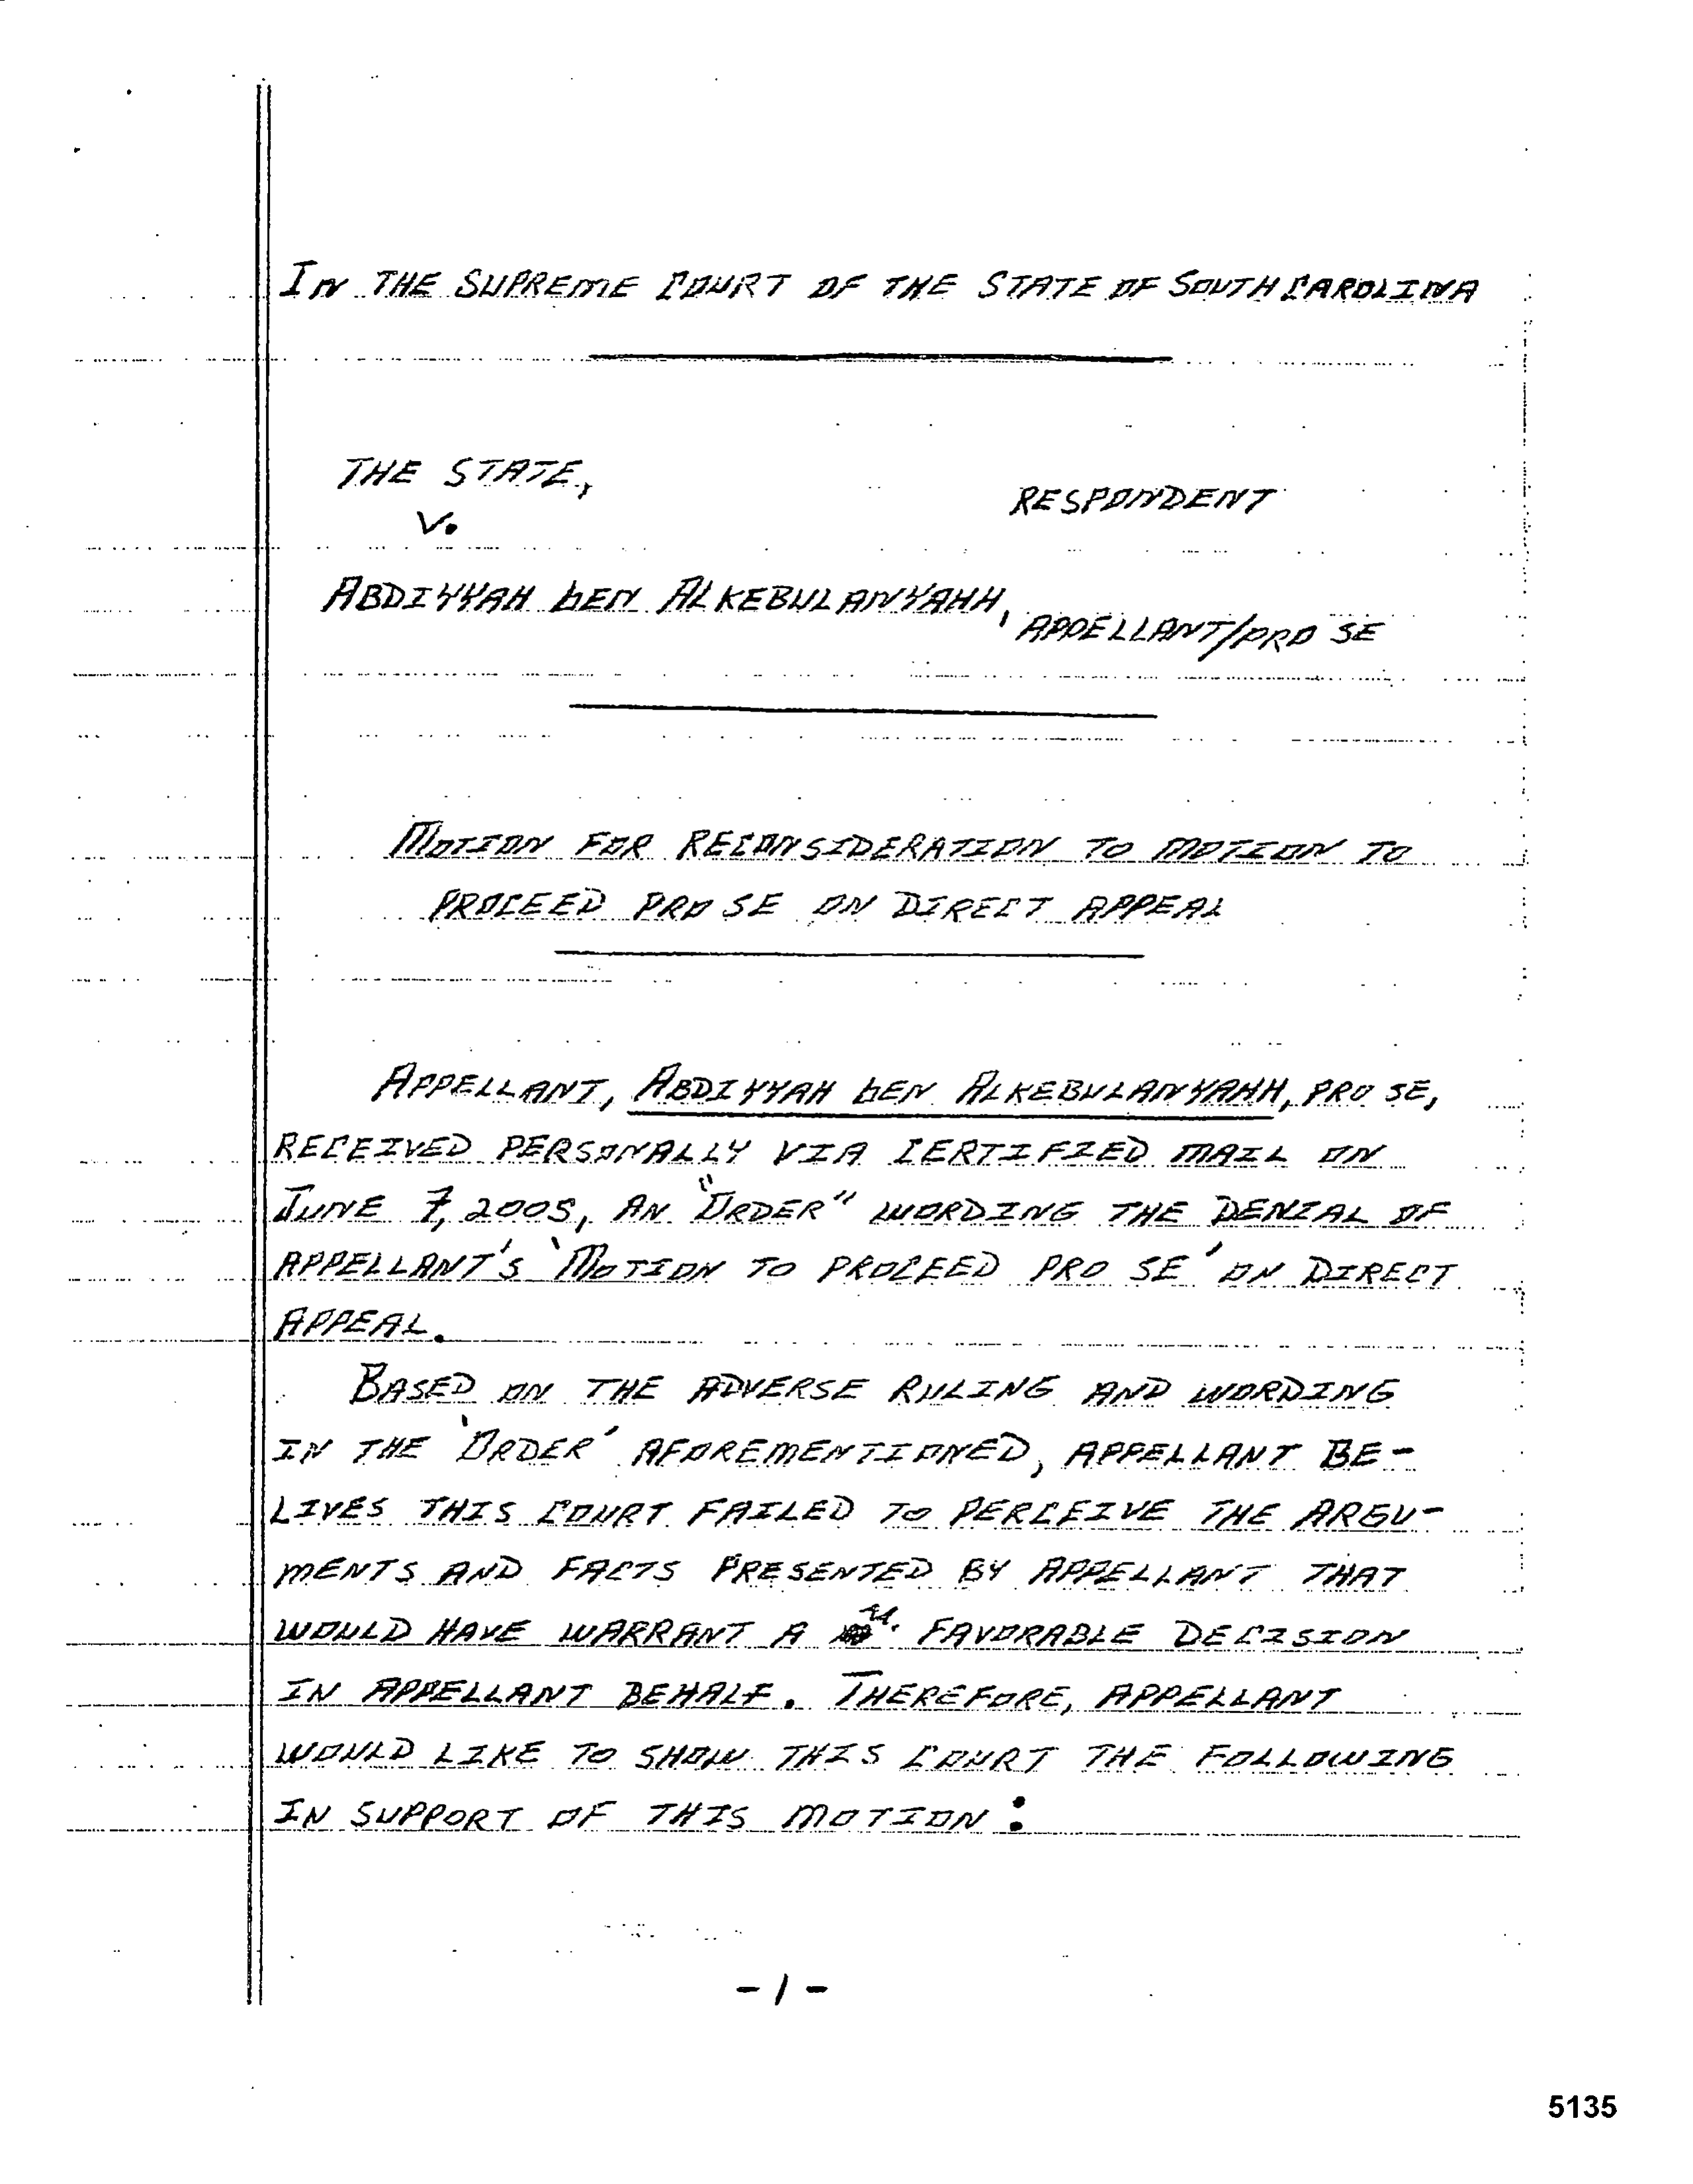 IN THE SUPREME COURT OF THE STATE OF SOUTH CAROLINA
THE STATE,
RESPONDENT
V.
ABDIYYAH bEN ALKEBULANYAHH,
APPELLANT/PRO SE
MOTION FOR RECONSIDERATION TO MOTION TO
PROCEED PRO SE ON DIRECT APPEAL
APPELLANT, ABDIYYAH bEN ALKEBULANYAHH, PRO SE,
RECEIVED PERSONALLY VIA CERTIFIED MAIL ON
JUNE 7, 2005, AN "ORDER" WORDING THE DENIAL OF
APPELLANT'S 'MOTION TO PROCEED PRO SE' ON DIRECT
APPEAL.
BASED ON THE ADVERSE RULING AND WORDING
IN THE 'ORDER' AFOREMENTIONED, APPELLANT BE-
LIVES THIS COURT FAILED TO PERCEIVE THE ARGU-
MENTS AND FACTS PRESENTED BY APPELLANT THAT
WOULD HAVE WARRANT A FAVORABLE DECISION
IN APPELLANT BEHALF. THEREFORE, APPELLANT
WOULD LIKE TO SHOW THIS COURT THE FOLLOWING
IN SUPPORT OF THIS MOTION:
-1-
5135